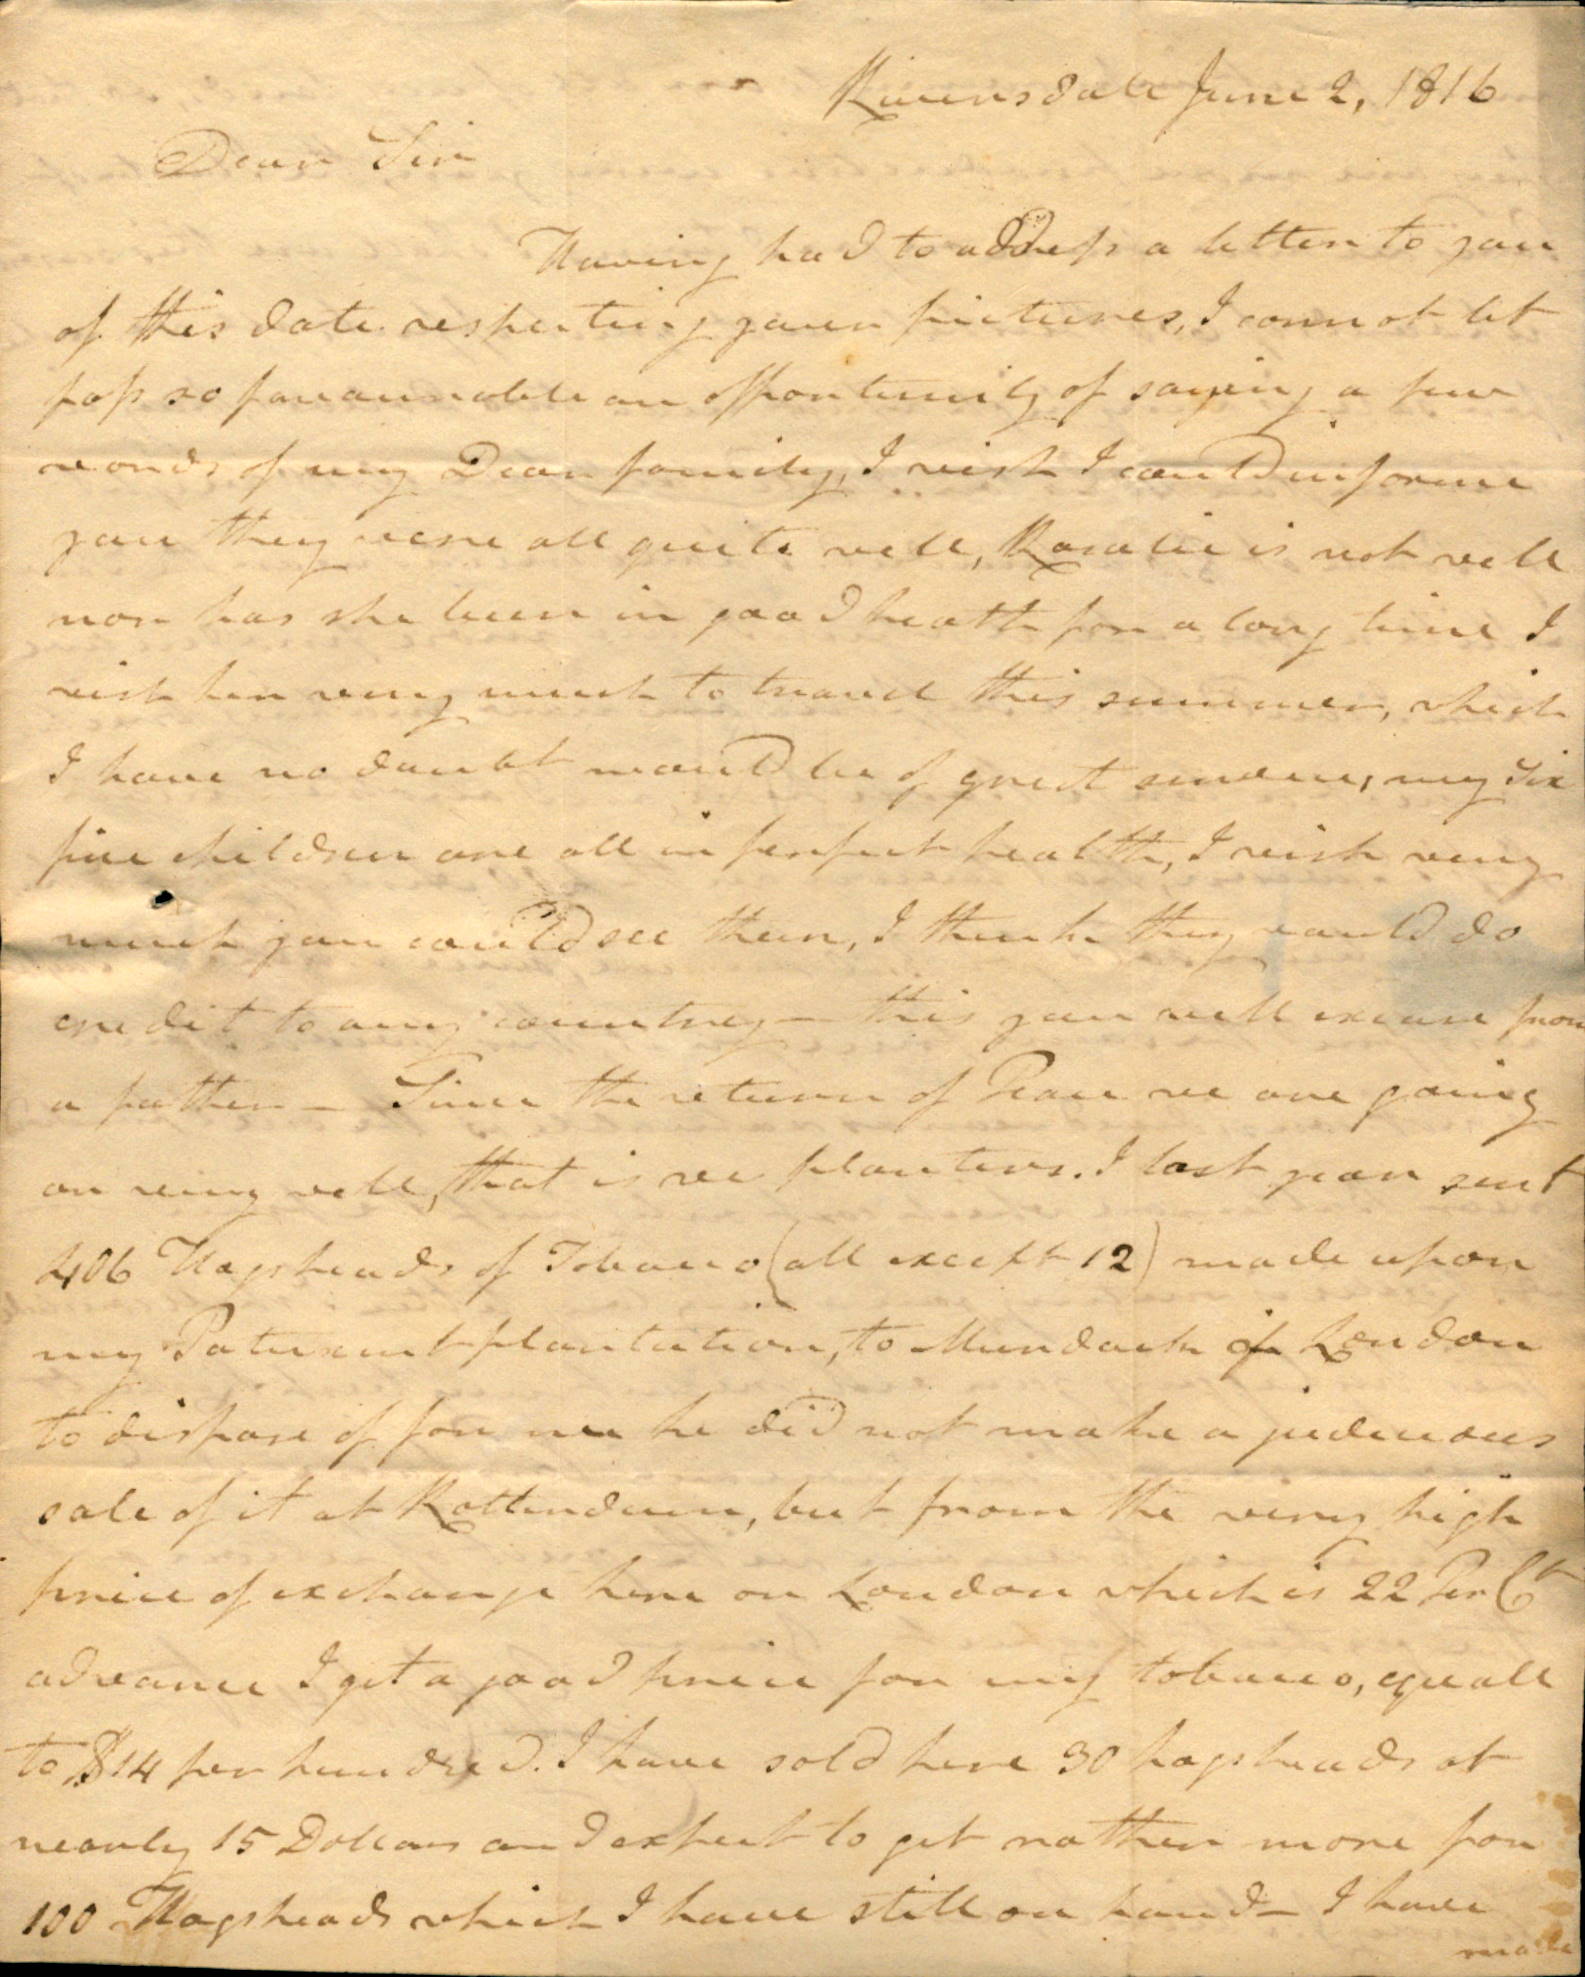 Riversdale June 2, 1816
Dear Sir
Having had to address a letter to you
of this date respecting your pictures, I cannot let
pass so favourable an opportunity of saying a few
words of my Dear family, I wish I could informe
you they were all quite well, Rosalie is not well
nor has she been in good health for a long time I
wish her very much to travel this summer, which
I have no doubt would be of great service, my Six
fine children are all in perfect health, I wish very
much you could see them, I think they would do
credit to any country — this you will excuse from
a father — Since the return of Peace we are going
on very well, that is we planters. I last year sent
406 Hogsheads of Tobacco (all except 12) made upon
my Patuxent plantation, to Murdock of London
to dispose of for me he did not make a judicious
sale of it at Rotterdam, but from the very high
price of exchange here on London which is 22 Per Ct
advance I get a good price for my tobacco, equall
to $14 per hundred. I have sold here 30 hogsheads at
nearly 15 Dollars and expect to get rather more for
100 Hogsheads which I have still on hand — I have
made